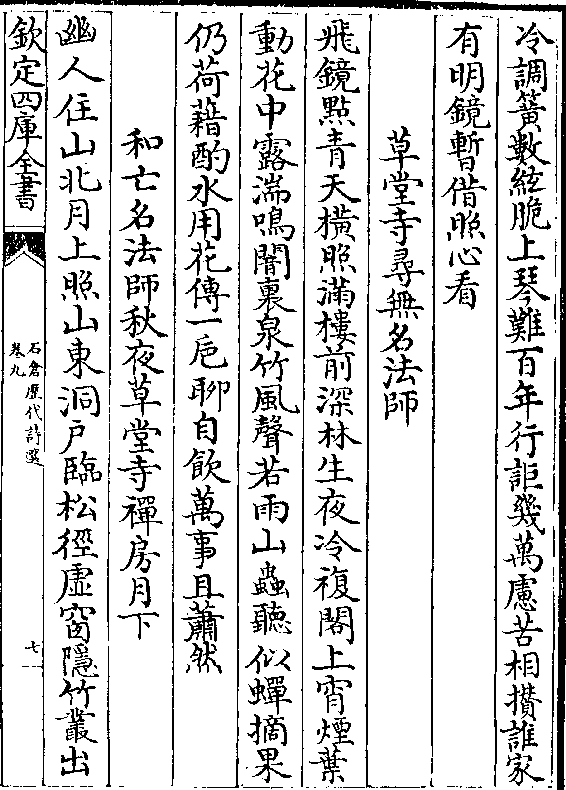 冷調簧數絃脆上琴難百年行詎幾萬慮苦相攅誰家
有明鏡暫借照心看
草堂寺尋無名法師
飛鏡點青天横照滿樓前深林生夜冷複閣上宵煙葉
動花中露湍鳴闇裏泉竹風聲若雨山蟲聽似蟬摘果
仍荷藉酌水用花傳一巵聊自飲萬事且蕭然
和亡名法師秋夜草堂寺禪房月下
幽人住山北月上照山東洞戶臨松徑虛窗隱竹叢出
欽定四庫全書
石倉歷代詩選
卷九
七